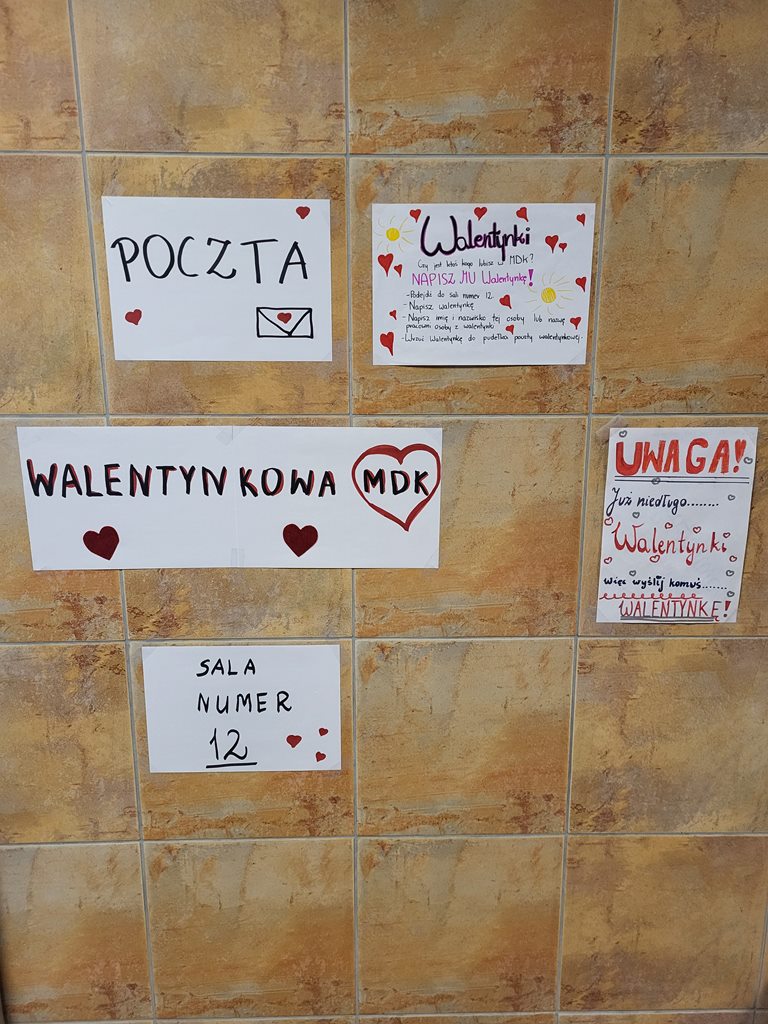 POCZTA
Walentynki
Czy jest ktoś kogo lubisz w MDK?
NAPISZ MU Walentynkę!
-Podejdź do sali numer 12
-Napisz walentynkę
-Napisz imię i nazwisko tej osoby lub nazwę
pracowni osoby z walentynki
-Wrzuć Walentynkę do pudełka poczty walentynkowej.
WALENTYNKOWA MDK
UWAGA!
Już niedługo........
Walentynki
więc wyślij komuś.......
WALENTYNKĘ!
SALA
NUMER
12